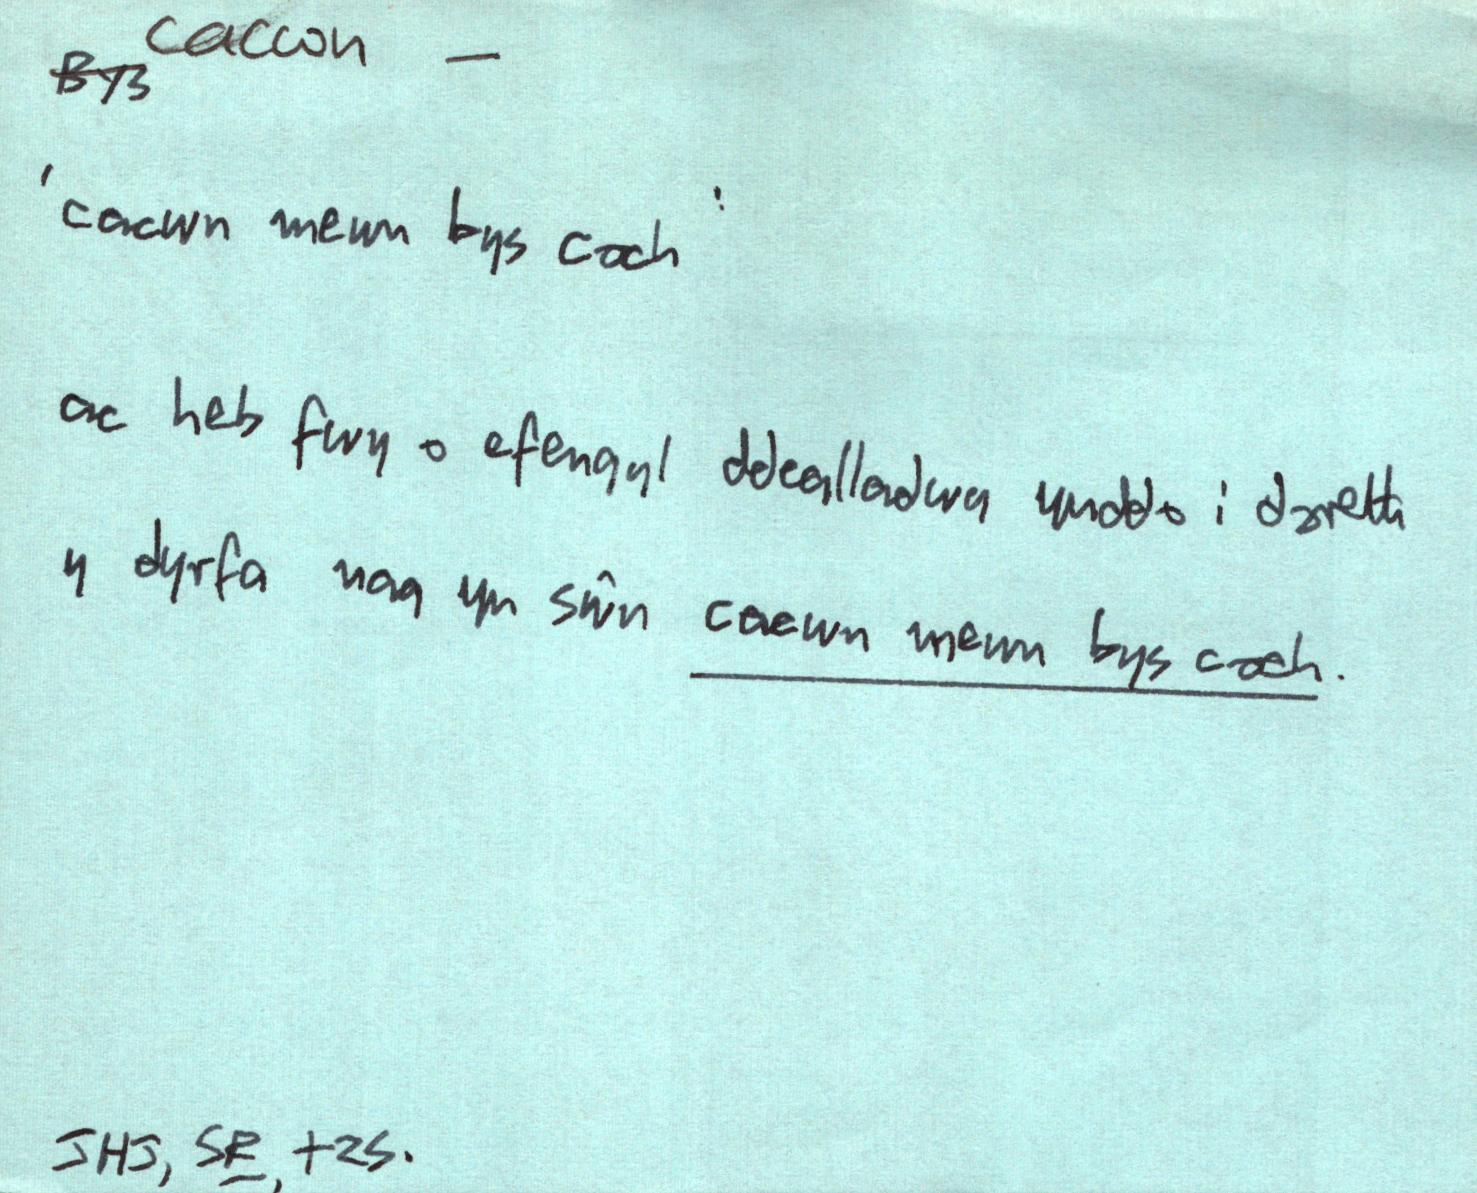 cacwn –
BYS
'cacwn mewn bys coch'
ac heb fwy o efengyl ddealladwy ynddo i
y dyrfa nag yn sŵn cacwn mewn bys coch.
JHJ, SE, t25.